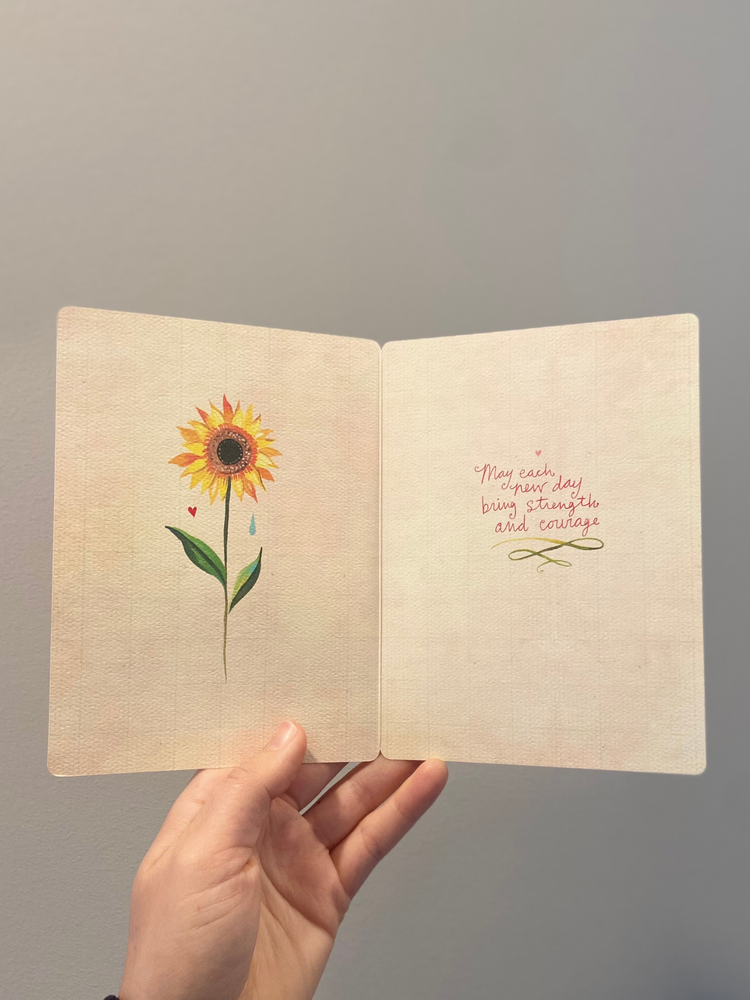 May each
new day
bring strength
and courage